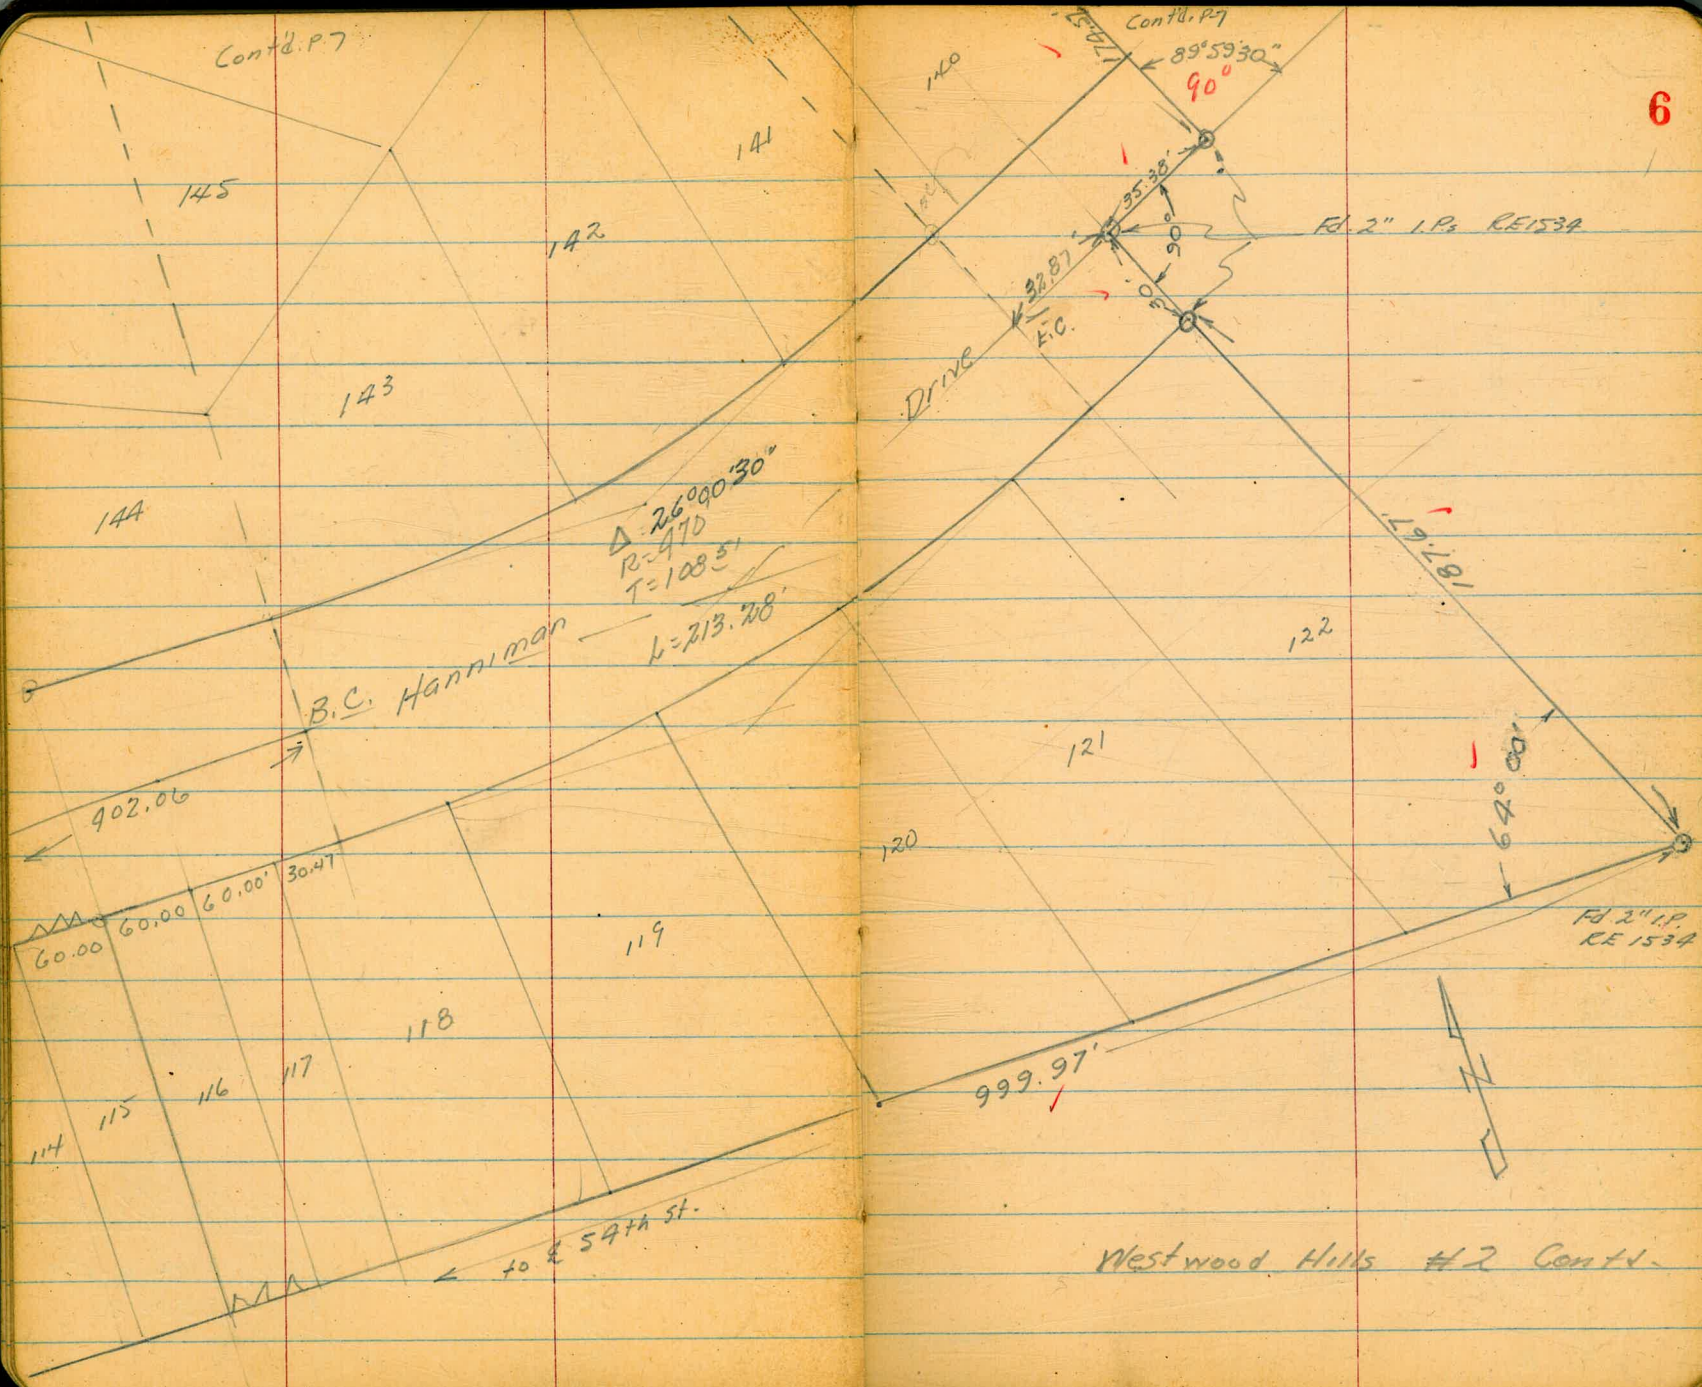 Cont'd. P. 7
145
141
142
143
144
Δ 26°00'30"
R=470
T=108.51
L=213.28'
B.C. Hanniman
402.06
60.00 60.00 60.00' 30.47
119
118
117
116
115
114
to ℄ 54th St.
Cont'd. P-7
174.52'
89°59'30"
90°
6
140
35.38'
90°
Fd. 2" I.Ps RE1534
32.87'
30'
E.C.
Drive
187.67'
122
121
120
64°00'
Fd. 2" I.P.
RE 1534
999.97'
N
Westwood Hills #2 Contd.